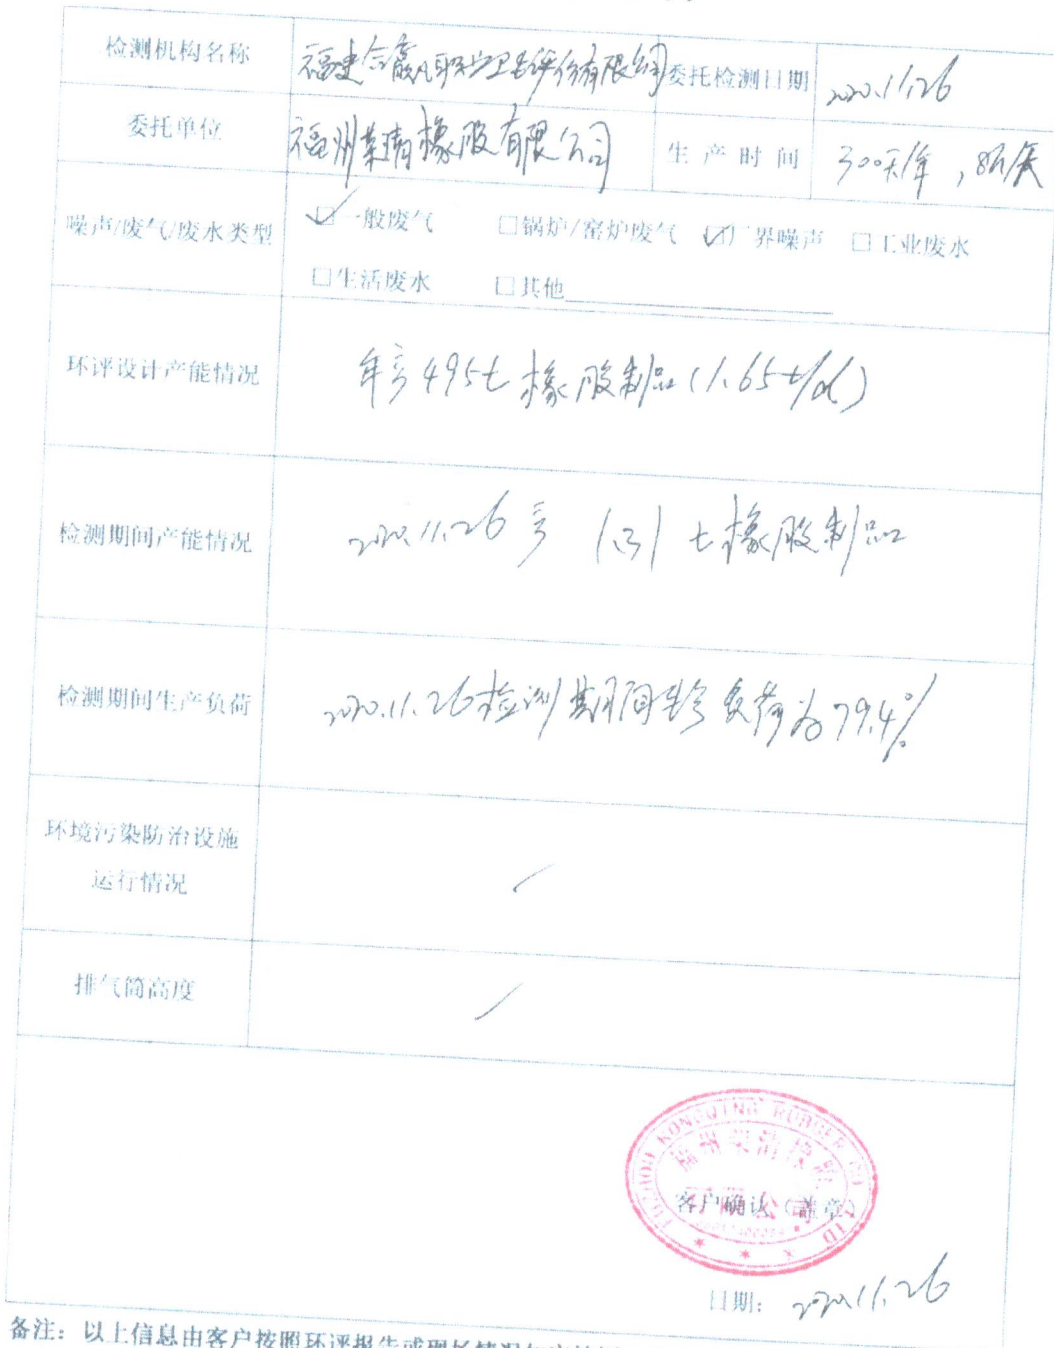 检测机构名称 福建 职业卫生评价有限公司 委托检测日期 2020.11.26
委托单位 福州荣清橡胶有限公司 生产时间 300天/年,8h/天
噪声/废气/废水类型 ☑一般废气 □锅炉/窑炉废气 ☑厂界噪声 □工业废水
□生活废水 □其他
环评设计产能情况 年产495t橡胶制品(1.65t/d)
检测期间产能情况 2020.11.26产 1.31 t橡胶制品
检测期间生产负荷 2020.11.26检测期间生产负荷为79.4%
环境污染防治设施
运行情况 /
排气筒高度 /
FUZHOU RONGQING RUBBER CO., LTD
福州荣清橡胶
有限公司
客户确认(盖章)
日期: 2020.11.26
备注:以上信息由客户按照环评报告或